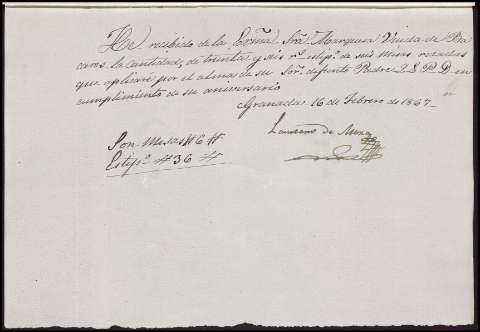 He recibido de la Exma. Sra. Marquesa Viuda de
cans, la cantidad de treinta y seis rs. estipo. de seis misas rezadas
que aplicaré por el alma de su Sor. difunto Padre Q. E. P. D. en
cumplimiento de su aniversario
Granada 16 de Febrero de 1867.
de
Son. Misas # 6 #
Estipo. # 36 #